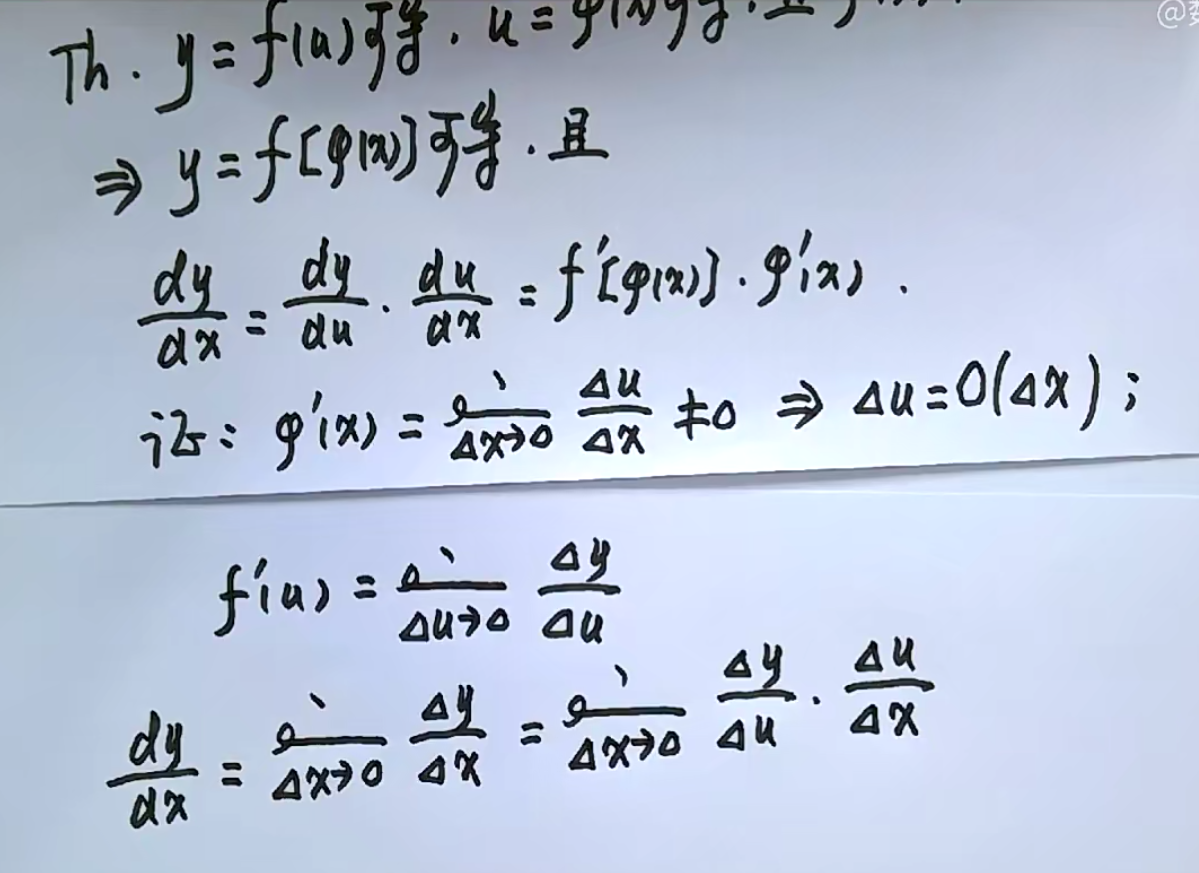 @
Th. y = f(u)可导. u = φ(x)可导. 且
⇒ y = f[φ(x)]可导. 且
dy/dx = dy/du · du/dx = f′[φ(x)] · φ′(x).
证: φ′(x) = lim Δx→0 Δu/Δx ≠0 ⇒ Δu = O(Δx);
f′(u) = lim Δu→0 Δy/Δu
dy/dx = lim Δx→0 Δy/Δx = lim Δx→0 Δy/Δu · Δu/Δx